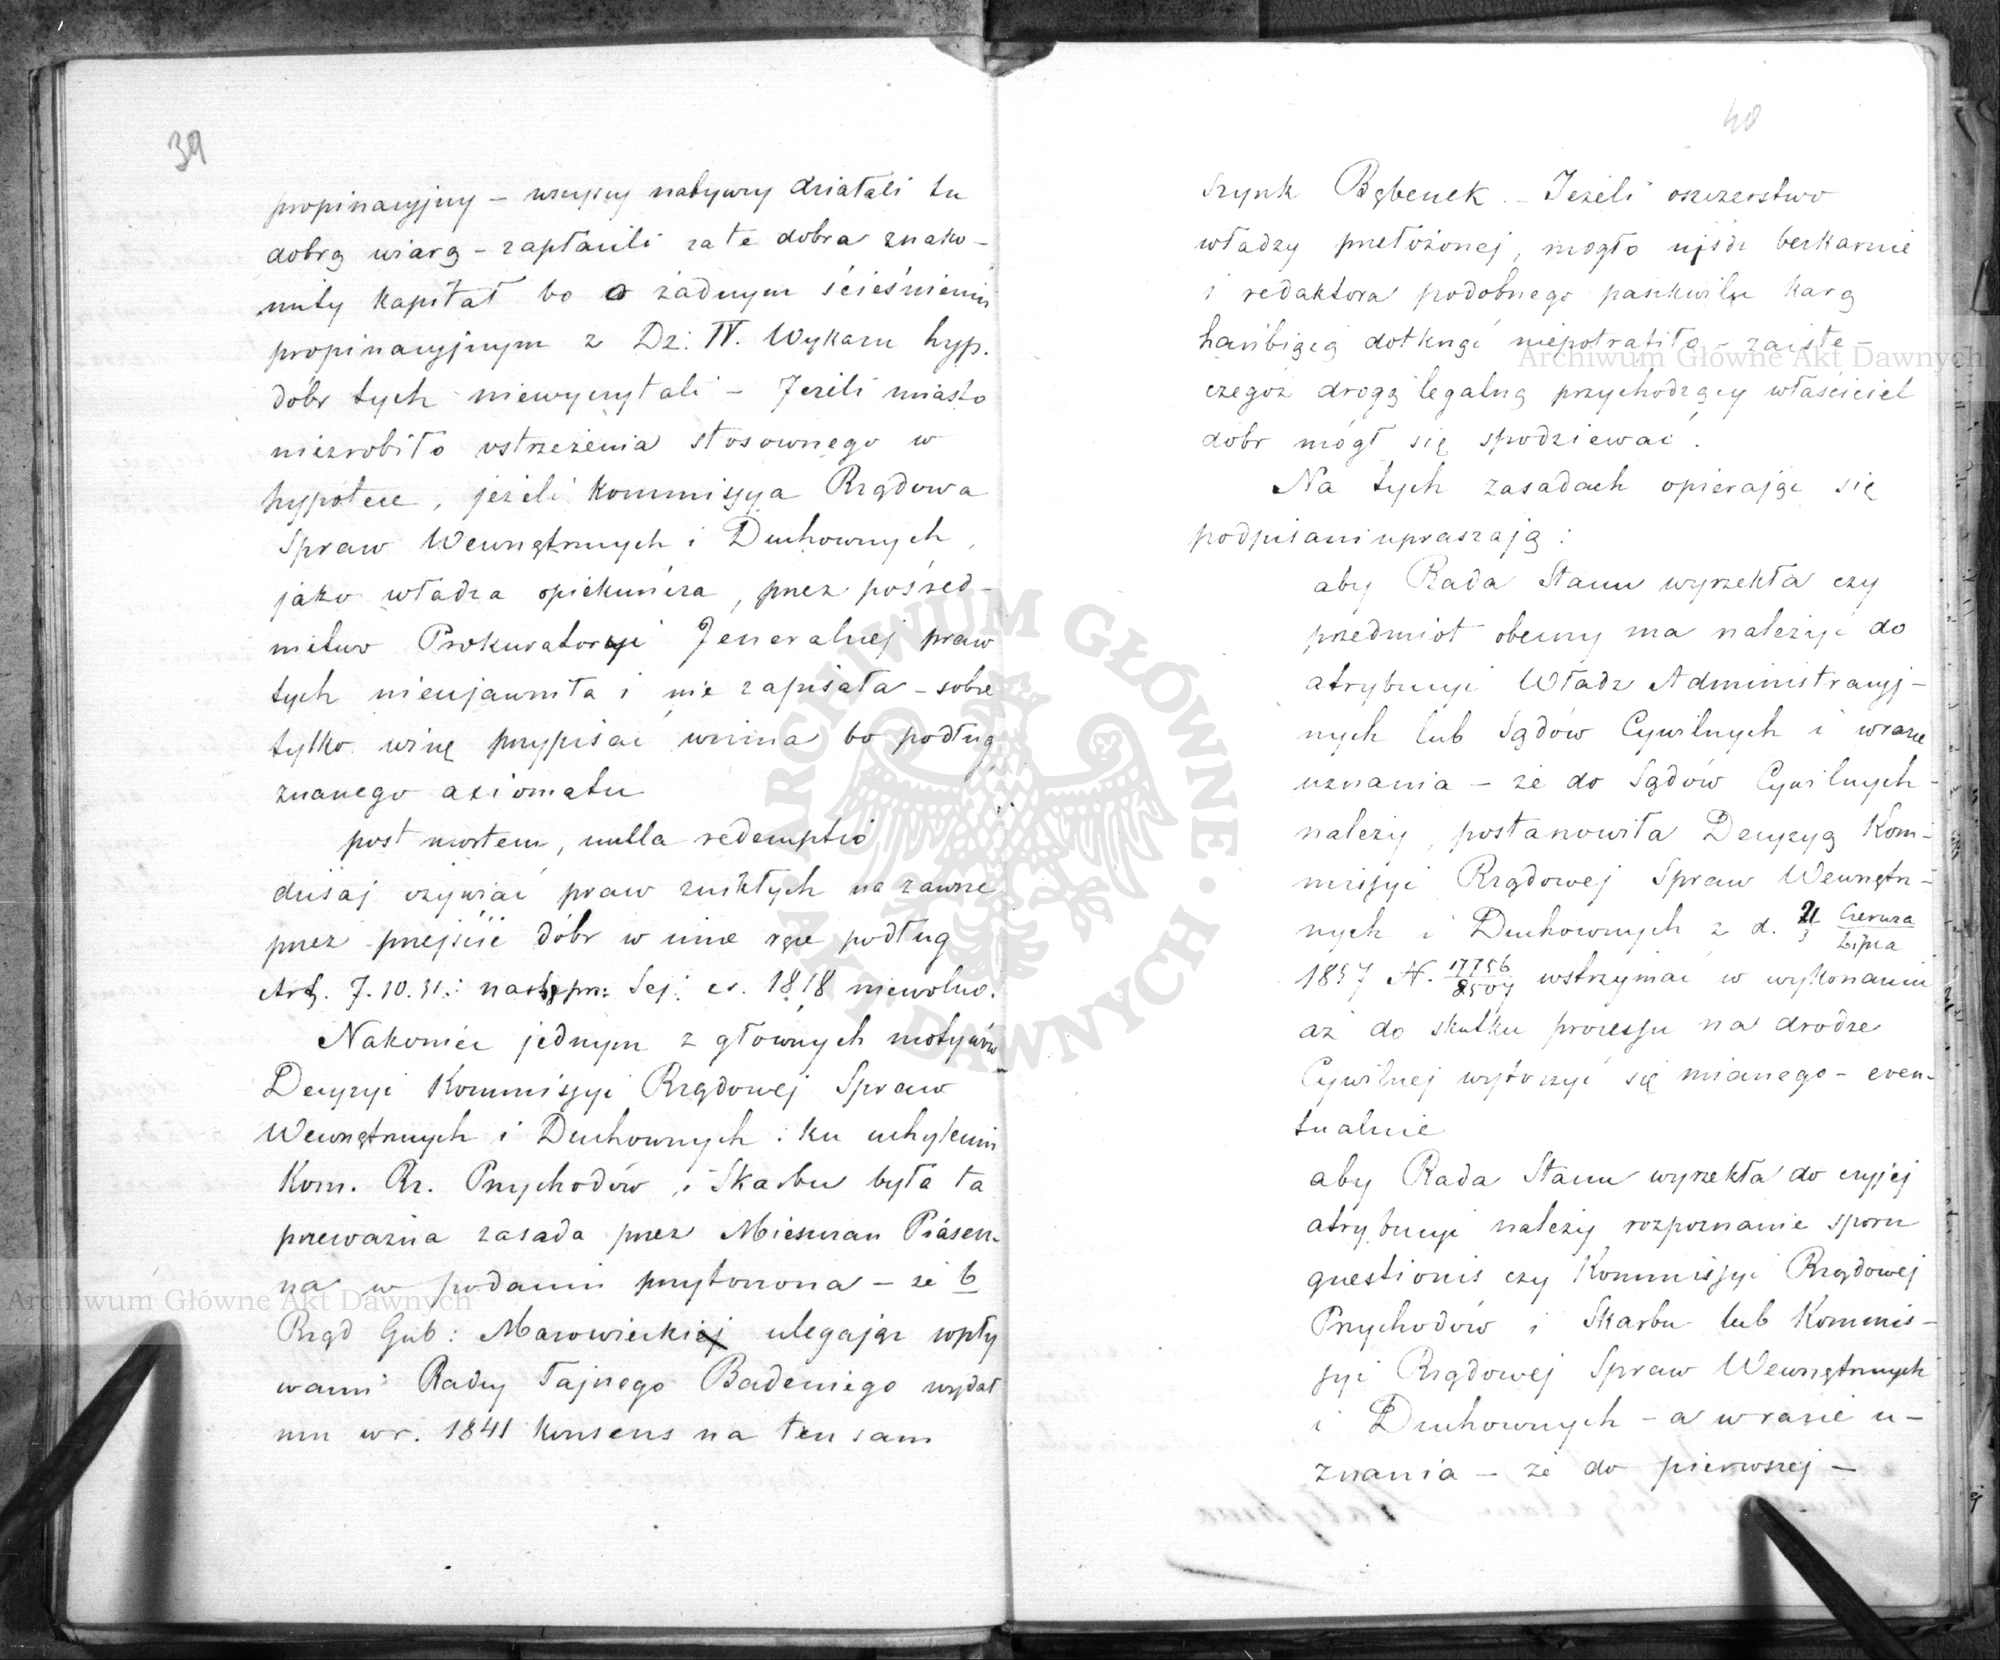 39
propinacyjny – wszyscy nabywcy działali tu
dobrą wiarą – zapłacili za te dobra znako-
mity kapitał bo o żadnym ścieśnieniu
propinacyjnym z Dz: IV. Wykazu hyp.
dóbr tych niewyczytali – Jeżeli miasto
niezrobiło ostrzeżenia stosownego w
hypotece, jeżeli Kommissya Rządowa
Spraw Wewnętrznych i Duchownych,
jako władza opiekuńcza, przez pośred-
nictwo Prokuratoryi Jeneralnej praw
tych nieujawniła i nie zapisała – sobie
tylko winę przypisać winna bo podług
znanego axiomatu
post mortem, nulla redemptio
dzisiaj ożywiać praw znikłych na zawsze
przez przejście dóbr w inne ręce podług
Art. 7. 10. 31.: nastpn: Sej: cr. 1818 niewolno.
Nakoniec jednym z głównych motywów
Decyzyi Kommissyi Rządowej Spraw
Wewnętrznych i Duchownych : ku uchyleniu
Kom. Rz. Przychodów i Skarbu była ta
przeważna zasada przez Mieszczan Piasecz-
na w podaniu przytoczona – że b
Rząd Gub: Mazowiecki ulegając wpły
wami Radcy Tajnego Badeniego wydał
mu w r. 1841 konsens na ten sam
40
szynk Bębenek. – Jeżeli oszczerstwo
władzy przełożonej, mogło ujść bezkarnie
i redaktora podobnego paszkwilu karą
hańbiącą dotknąć niepotrafiło – zaiste –
czegóż drogą legalną przychodzący właściciel
dóbr mógł się spodziewać.
Na tych zasadach opierając się
podpisani upraszają :
aby Rada Stanu wyrzekła czy
przedmiot obecny ma należyć do
atrybucyi Władz Administracyj-
nych lub Sądów Cywilnych i wrazie
uznania – że do Sądów Cywilnych –
należy, postanowiła Decyzyą Kom-
missyi Rządowej Spraw Wewnętrz-
nych i Duchownych z d. 21/3 Czerwca/Lipca
1857 N. 17756/8507 wstrzymać w wykonaniu
aż do skutku processu na drodze
Cywilnej wytoczyć się mianego – even-
tualnie
aby Rada Stanu wyrzekła do czyjej
atrybucyi należy rozpoznanie sporu
questionis czy Kommissyi Rządowej
Przychodów i Skarbu lub Kommis-
syi Rządowej Spraw Wewnętrznych
i Duchownych – a wrazie u-
znania – że do pierwszej –
Archiwum Główne Akt Dawnych
Archiwum Główne Akt Dawnych
ARCHIWUM GŁÓWNE AKT DAWNYCH